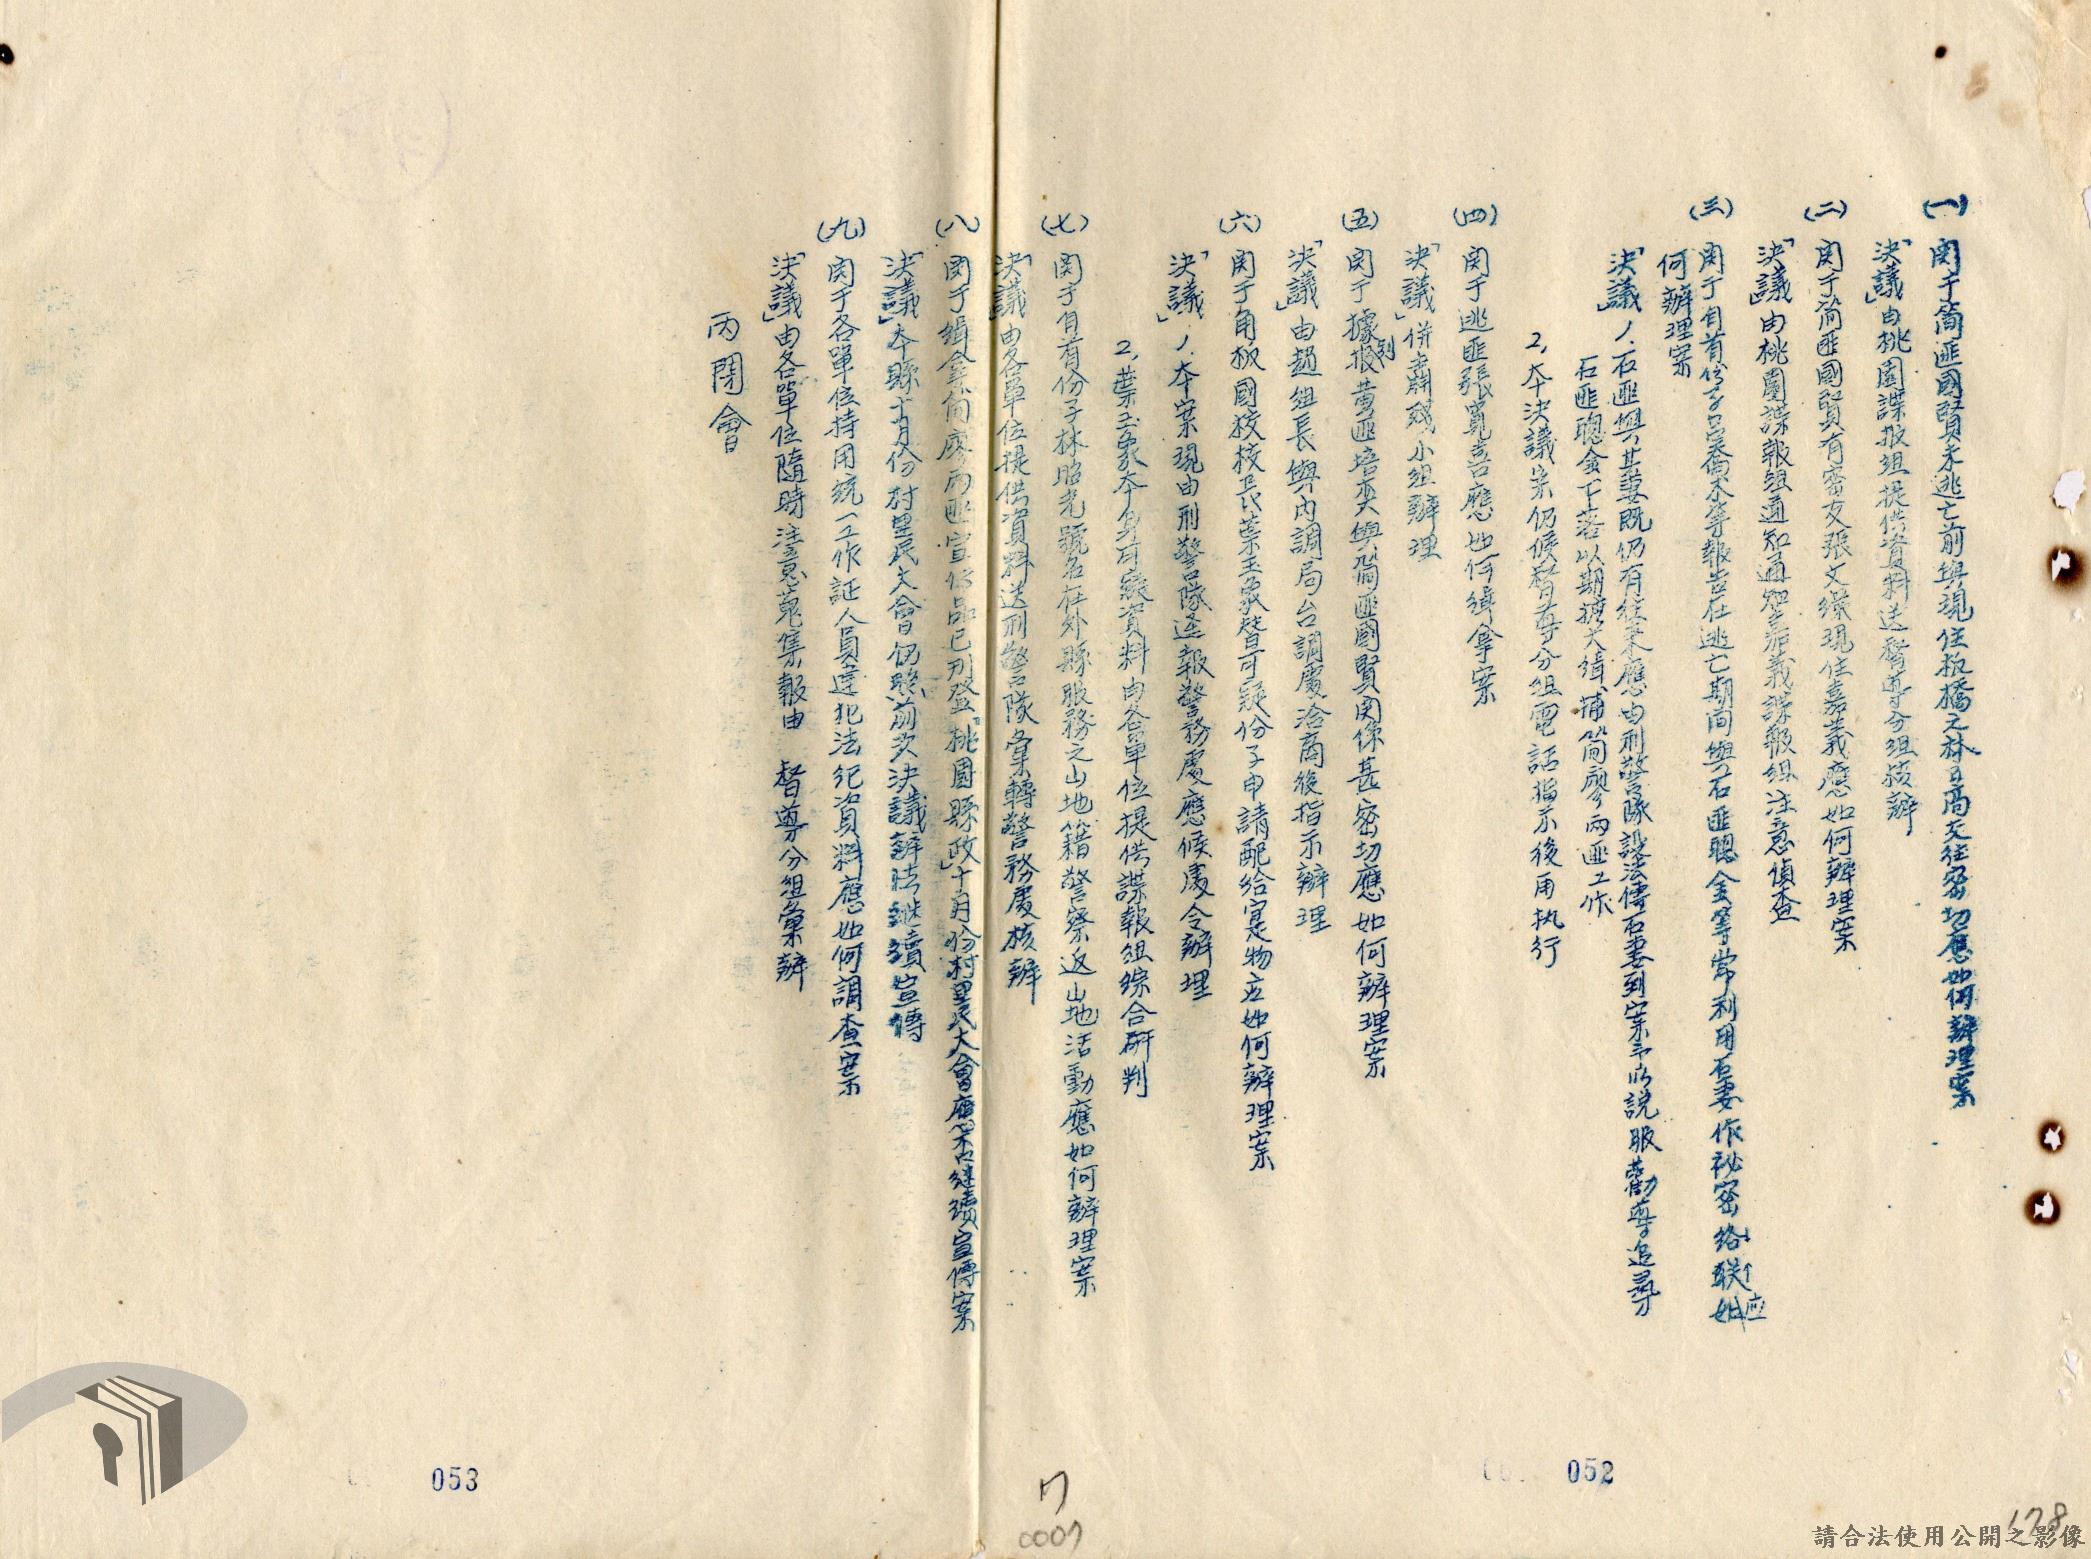 (一) 関于簡匪國賢未逃亡前與現住板橋之林五高交往密切應如何辦理案
「決議」由桃園諜报組提供資料送督導分組核辦
(二) 関于簡匪國賢有密友張文
現住嘉義應如何辦理案
「決議」由桃園諜報組通知
嘉義諜報組注意偵查
(三) 関于自首份子
等報告在逃亡期间與石匪聰金等常利用石妻作祕密絡联如应
何辦理案
「決議」1.石匪與其妻既仍有往來應由刑警隊設法傳石妻到案予以説服勸導追尋
石匪聰金下落以期擴大緝捕简廖兩匪工作
2.本決議案仍候督導分組電話指示後再执行
(四) 関于逃匪張寬喜應如何緝拿案
「決議」併肅殘小組辦理
(五) 関于據报黄匪培奕與簡匪國賢関係甚密切應如何辦理案
列
「決議」由趙組長與內調局台調處洽商後指示辦理
(六) 関于角板國校校長葉玉
可疑份子申請配給實物应如何辦理案
「決議」1.本案現由刑警隊逐報警務處應候處令辦理
2.葉玉象本身可疑資料由各單位提供諜報組綜合研判
(七) 関于自首份子林昭光號名在外縣服務之山地籍警察返山地活動應如何辦理案
「決議」由各單位提供資料送刑警隊彙轉警務處核辦
(八) 関于緝拿簡廖両匪宣传品已刋登「桃園縣政」十月份村里民大會應否继續宣傳案
「決議」本縣十月份村里民大會仍照前次決議辦法継續宣傳
(九) 関于各單位持用統一工作証人員違犯法纪資料應如何調查案
「決議」由各單位隨時注意蒐集報由 督導分組彙辦
丙閉會
053
052
0007
128
請合法使用公開之影像